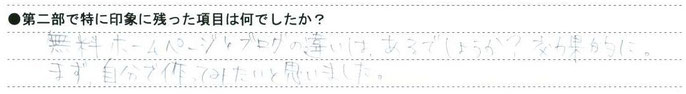 ●第二部で特に印象に残った項目は何でしたか？
無料ホームページとブログの違いは、あるでしょうか？効果的に。
まず、自分で作ってみたいと思いました。